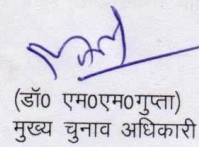 (डॉ0 एम0एम0गुप्ता)
मुख्य चुनाव अधिकारी